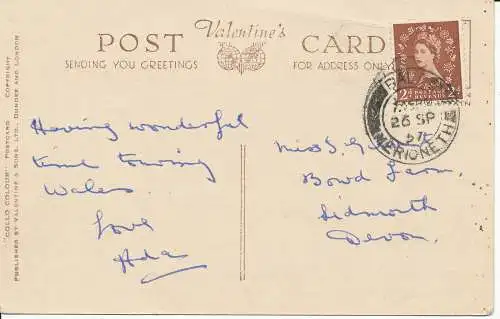 Valentine's
POST CARD
SENDING YOU GREETINGS
FOR ADDRESS ONLY
"COLLO COLOUR" POSTCARD COPYRIGHT
PUBLISHED BY VALENTINE & SONS, LTD., DUNDEE AND LONDON
2d POSTAGE REVENUE 2d
26 SP
57
MERIONETH
Having wonderful
time touring
Wales
Love
Ada
Miss S.
Bowd Farm,
Sidmouth
Devon.